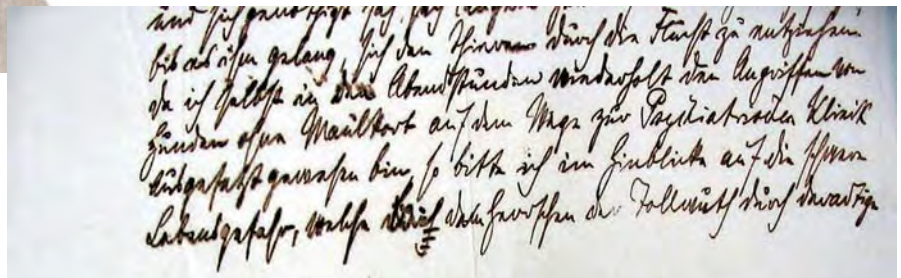 und sich genöthigt sah, sich
bis es ihm gelang, sich den Thieren durch die Flucht zu entziehen.
da ich selbst in den Abendstunden wiederholt den Angriffen von
Hunden ohne Maulkorb auf dem Wege zur Psychiatrischen Klinik
ausgesetzt gewesen bin, so bitte ich im Hinblicke auf die schwere
Lebensgefahr, welche bei dem Herrschen der Tollwuth durch derartige